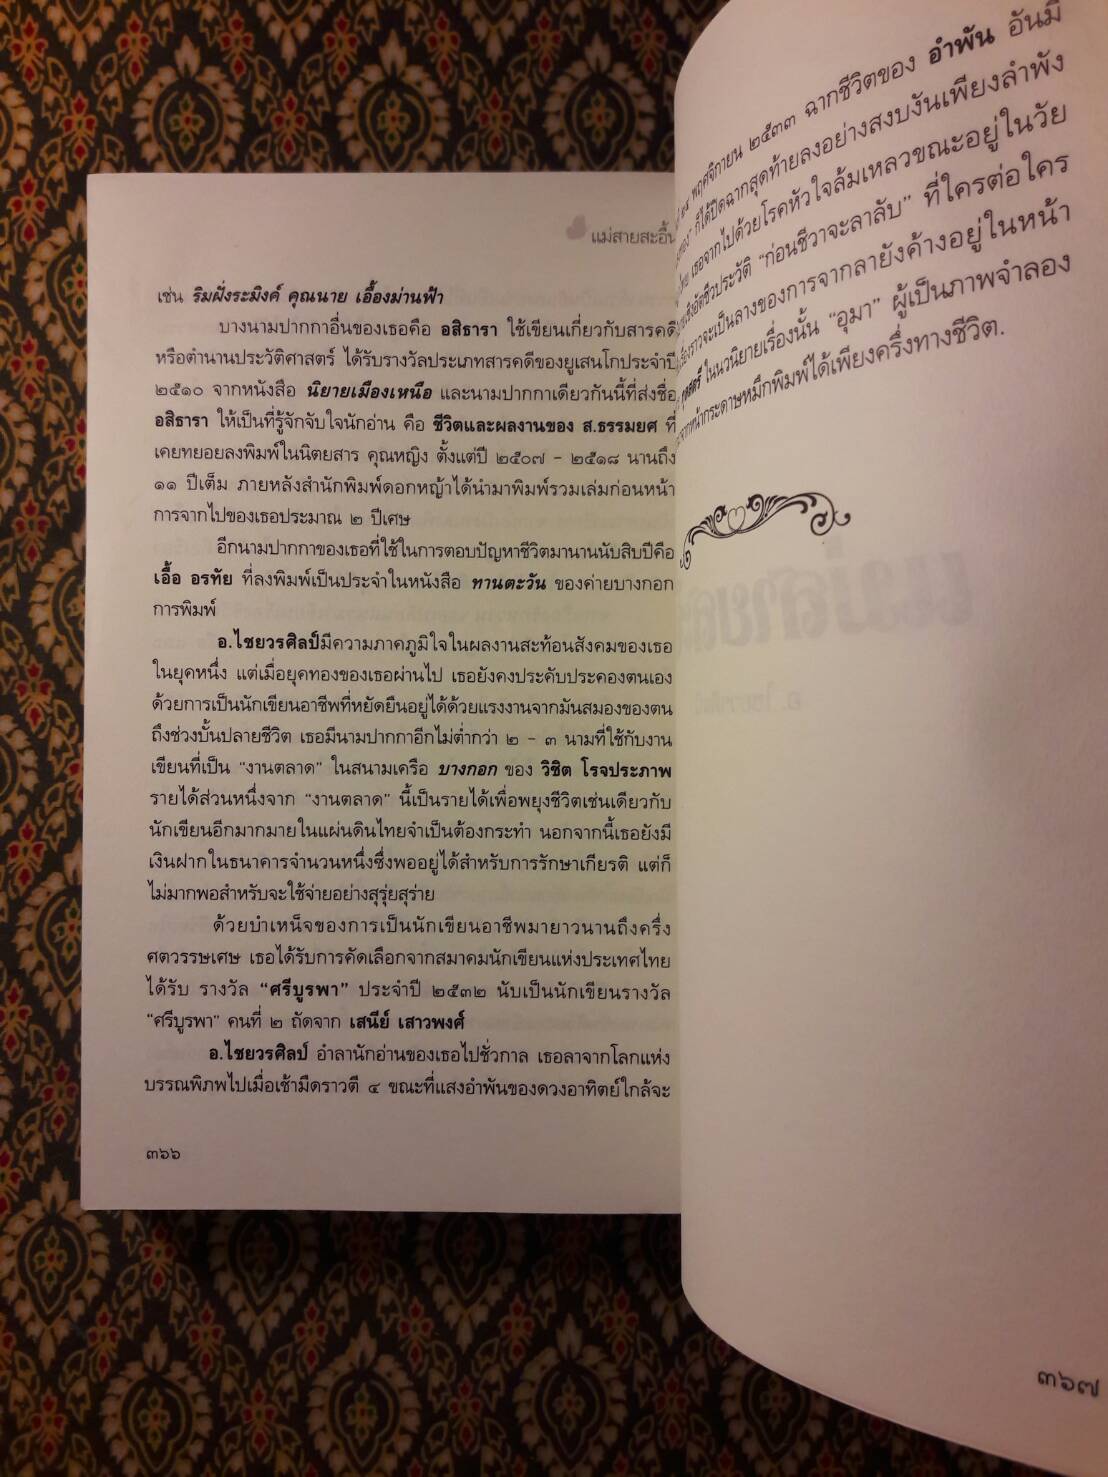 แม่สายสะอื้น
เช่น ริมฝั่งระมิงค์ คุณนาย เอื้องม่านฟ้า
บางนามปากกาอื่นของเธอคือ อสิธารา ใช้เขียนเกี่ยวกับสารคดี
หรือตำนานประวัติศาสตร์ ได้รับรางวัลประเภทสารคดีของยูเสนโกประจำปี
๒๕๑๐ จากหนังสือ นิยายเมืองเหนือ และนามปากกาเดียวกันนี้ที่ส่งชื่อ
อสิธารา ให้เป็นที่รู้จักจับใจนักอ่าน คือ ชีวิตและผลงานของ ส.ธรรมยศ ที่
เคยทยอยลงพิมพ์ในนิตยสาร คุณหญิง ตั้งแต่ปี ๒๕๐๗ - ๒๕๑๘ นานถึง
๑๑ ปีเต็ม ภายหลังสำนักพิมพ์ดอกหญ้าได้นำมาพิมพ์รวมเล่มก่อนหน้า
การจากไปของเธอประมาณ ๒ ปีเศษ
อีกนามปากกาของเธอที่ใช้ในการตอบปัญหาชีวิตมานานนับสิบปีคือ
เอื้อ อรทัย ที่ลงพิมพ์เป็นประจำในหนังสือ ทานตะวัน ของค่ายบางกอก
การพิมพ์
อ.ไชยวรศิลป์มีความภาคภูมิใจในผลงานสะท้อนสังคมของเธอ
ในยุคหนึ่ง แต่เมื่อยุคทองของเธอผ่านไป เธอยังคงประคับประคองตนเอง
ด้วยการเป็นนักเขียนอาชีพที่หยัดยืนอยู่ได้ด้วยแรงงานจากมันสมองของตน
ถึงช่วงบั้นปลายชีวิต เธอมีนามปากกาอีกไม่ต่ำกว่า ๒ - ๓ นามที่ใช้กับงาน
เขียนที่เป็น “งานตลาด” ในสนามเครือ บางกอก ของ วิชิต โรจประภาพ
รายได้ส่วนหนึ่งจาก “งานตลาด” นี้เป็นรายได้เพื่อพยุงชีวิตเช่นเดียวกับ
นักเขียนอีกมากมายในแผ่นดินไทยจำเป็นต้องกระทำ นอกจากนี้เธอยังมี
เงินฝากในธนาคารจำนวนหนึ่งซึ่งพออยู่ได้สำหรับการรักษาเกียรติ แต่ก็
ไม่มากพอสำหรับจะใช้จ่ายอย่างสุรุ่ยสุร่าย
ด้วยบำเหน็จของการเป็นนักเขียนอาชีพมายาวนานถึงครึ่ง
ศตวรรษเศษ เธอได้รับการคัดเลือกจากสมาคมนักเขียนแห่งประเทศไทย
ได้รับ รางวัล “ศรีบูรพา” ประจำปี ๒๕๓๒ นับเป็นนักเขียนรางวัล
“ศรีบูรพา” คนที่ ๒ ถัดจาก เสนีย์ เสาวพงศ์
อ.ไชยวรศิลป์ อำลานักอ่านของเธอไปชั่วกาล เธอลาจากโลกแห่ง
บรรณพิภพไปเมื่อเช้ามืดราวตี ๔ ขณะที่แสงอำพันของดวงอาทิตย์ใกล้จะ
๓๖๖
พฤศจิกายน ๒๕๓๓ ฉากชีวิตของ อำพัน อันมี
ก็ได้ปิดฉากสุดท้ายลงอย่างสงบงันเพียงลำพัง
เธอจากไปด้วยโรคหัวใจล้มเหลวขณะอยู่ในวัย
เชิงอัตชีวประวัติ “ก่อนชีวาจะลาลับ” ที่ใครต่อใคร
ราวจะเป็นลางของการจากลายังค้างอยู่ในหน้า
ในนวนิยายเรื่องนั้น “อุมา” ผู้เป็นภาพจำลอง
หน้ากระดาษหมึกพิมพ์ได้เพียงครึ่งทางชีวิต.
๓๖๗